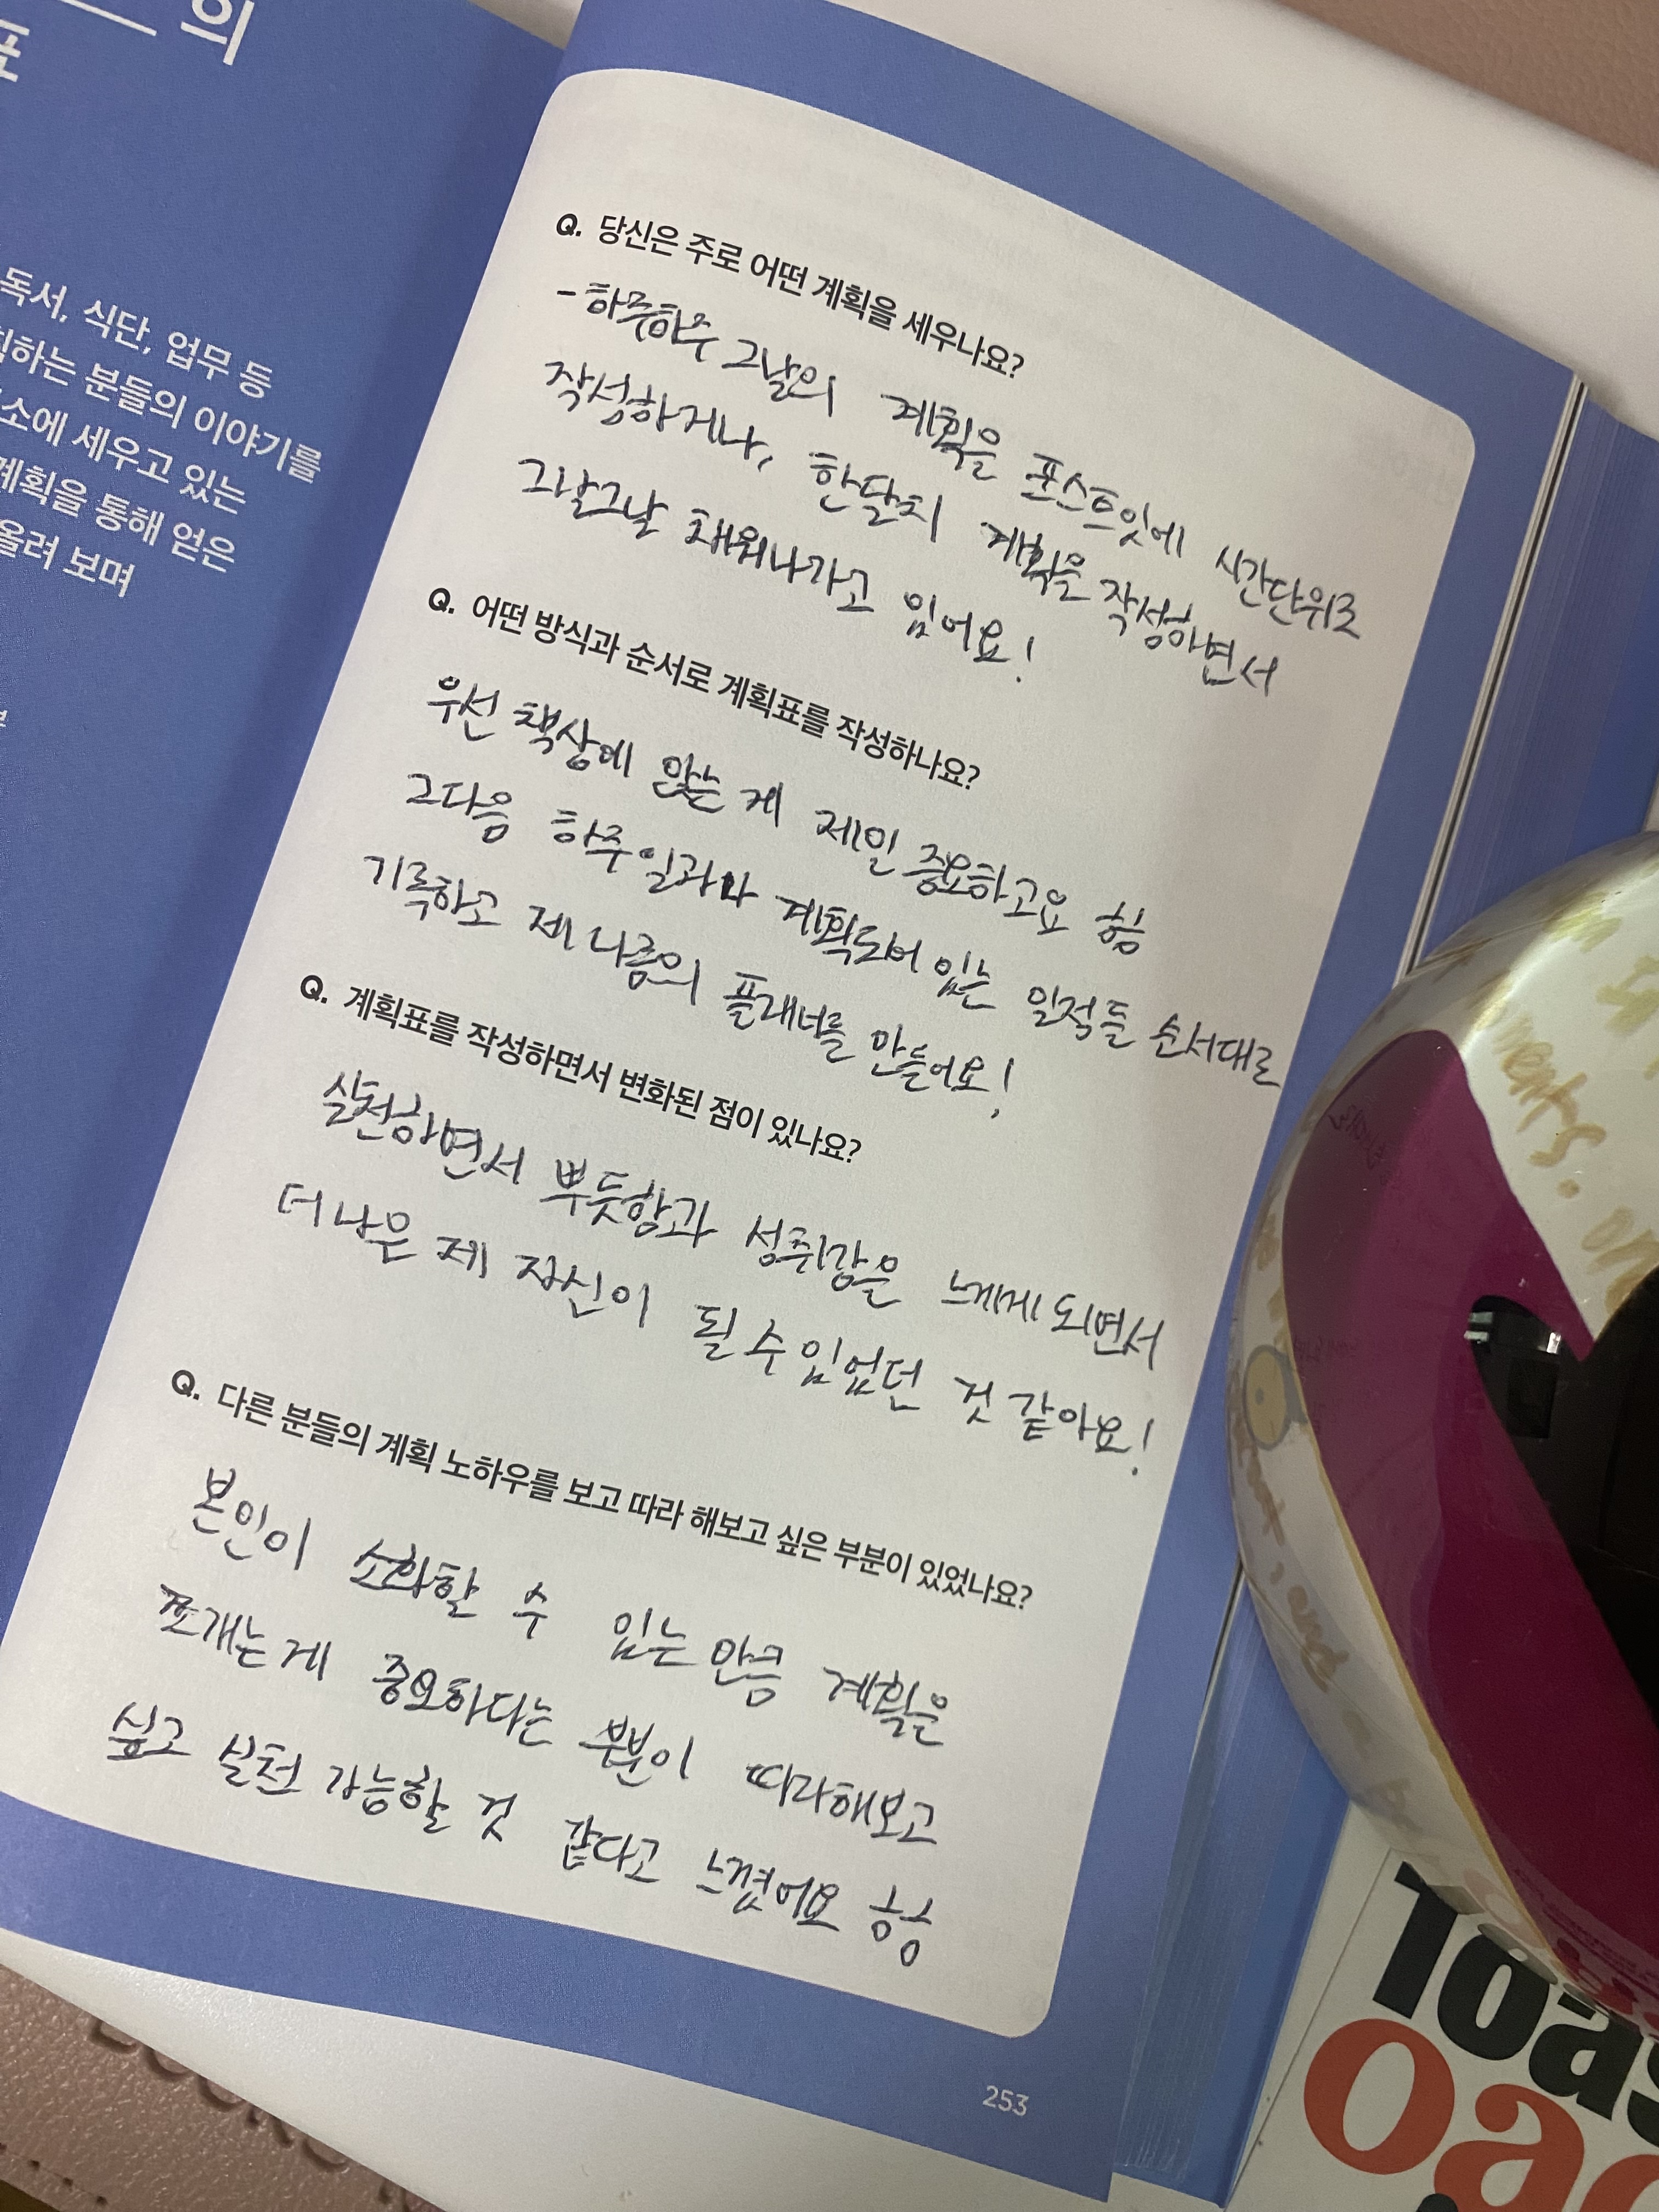 의
표
독서, 식단, 업무 등
하는 분들의 이야기를
소에 세우고 있는
계획을 통해 얻은
올려 보며
Q. 당신은 주로 어떤 계획을 세우나요?
- 하루하루 그날의 계획을 포스트잇에 시간단위로
작성하거나, 한달치 계획을 작성하면서
그날그날 채워나가고 있어요!
Q. 어떤 방식과 순서로 계획표를 작성하나요?
우선 책상에 앉는 게 제일 중요하고요 흠
그다음 하루 일과나 계획되어 있는 일정들 순서대로
기록하고 제 나름의 플래너를 만들어요!
Q. 계획표를 작성하면서 변화된 점이 있나요?
실천하면서 뿌듯함과 성취감을 느끼게 되면서
더 나은 제 자신이 될 수 있었던 것 같아요!
Q. 다른 분들의 계획 노하우를 보고 따라 해보고 싶은 부분이 있었나요?
본인이 소화할 수 있는 만큼 계획을
쪼개는 게 중요하다는 부분이 따라해보고
싶고 실천 가능할 것 같다고 느꼈어요 흐흐
253